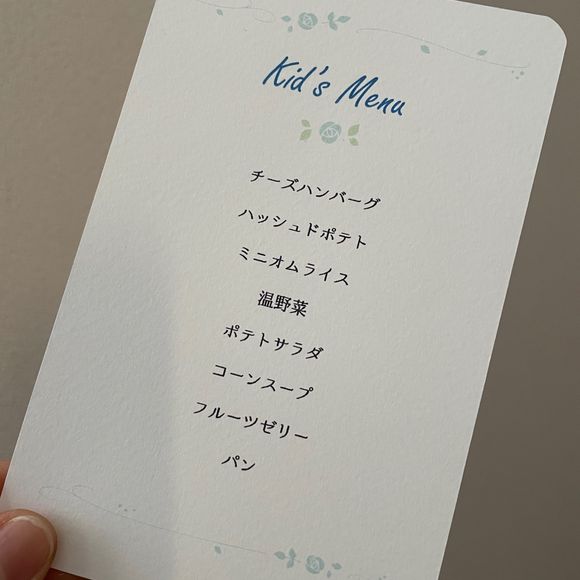 Kid's Menu
チーズハンバーグ
ハッシュドポテト
ミニオムライス
温野菜
ポテトサラダ
コーンスープ
フルーツゼリー
パン